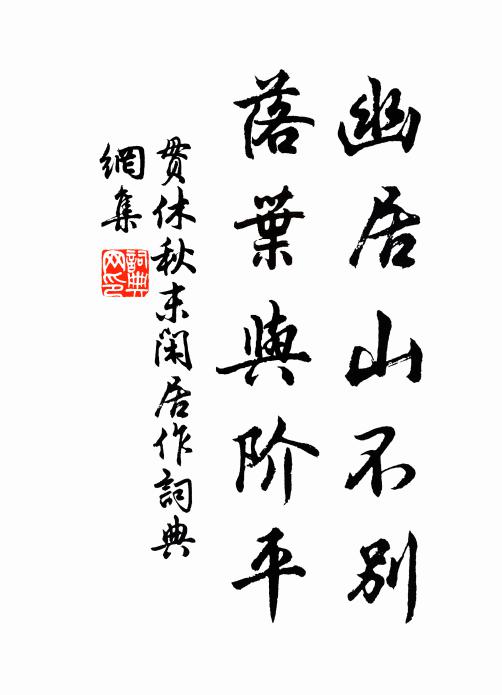 幽居山不別
落葉與阶平
貫休秋末閑居作詞典
網集
詞典網印